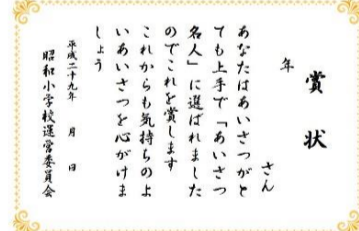 賞状
年　　　さん
あなたはあいさつがと
ても上手で「あいさつ
名人」に選ばれました
のでこれを賞します
これからも気持ちのよ
いあいさつを心がけま
しょう
平成二十九年　月　日
昭和小学校運営委員会